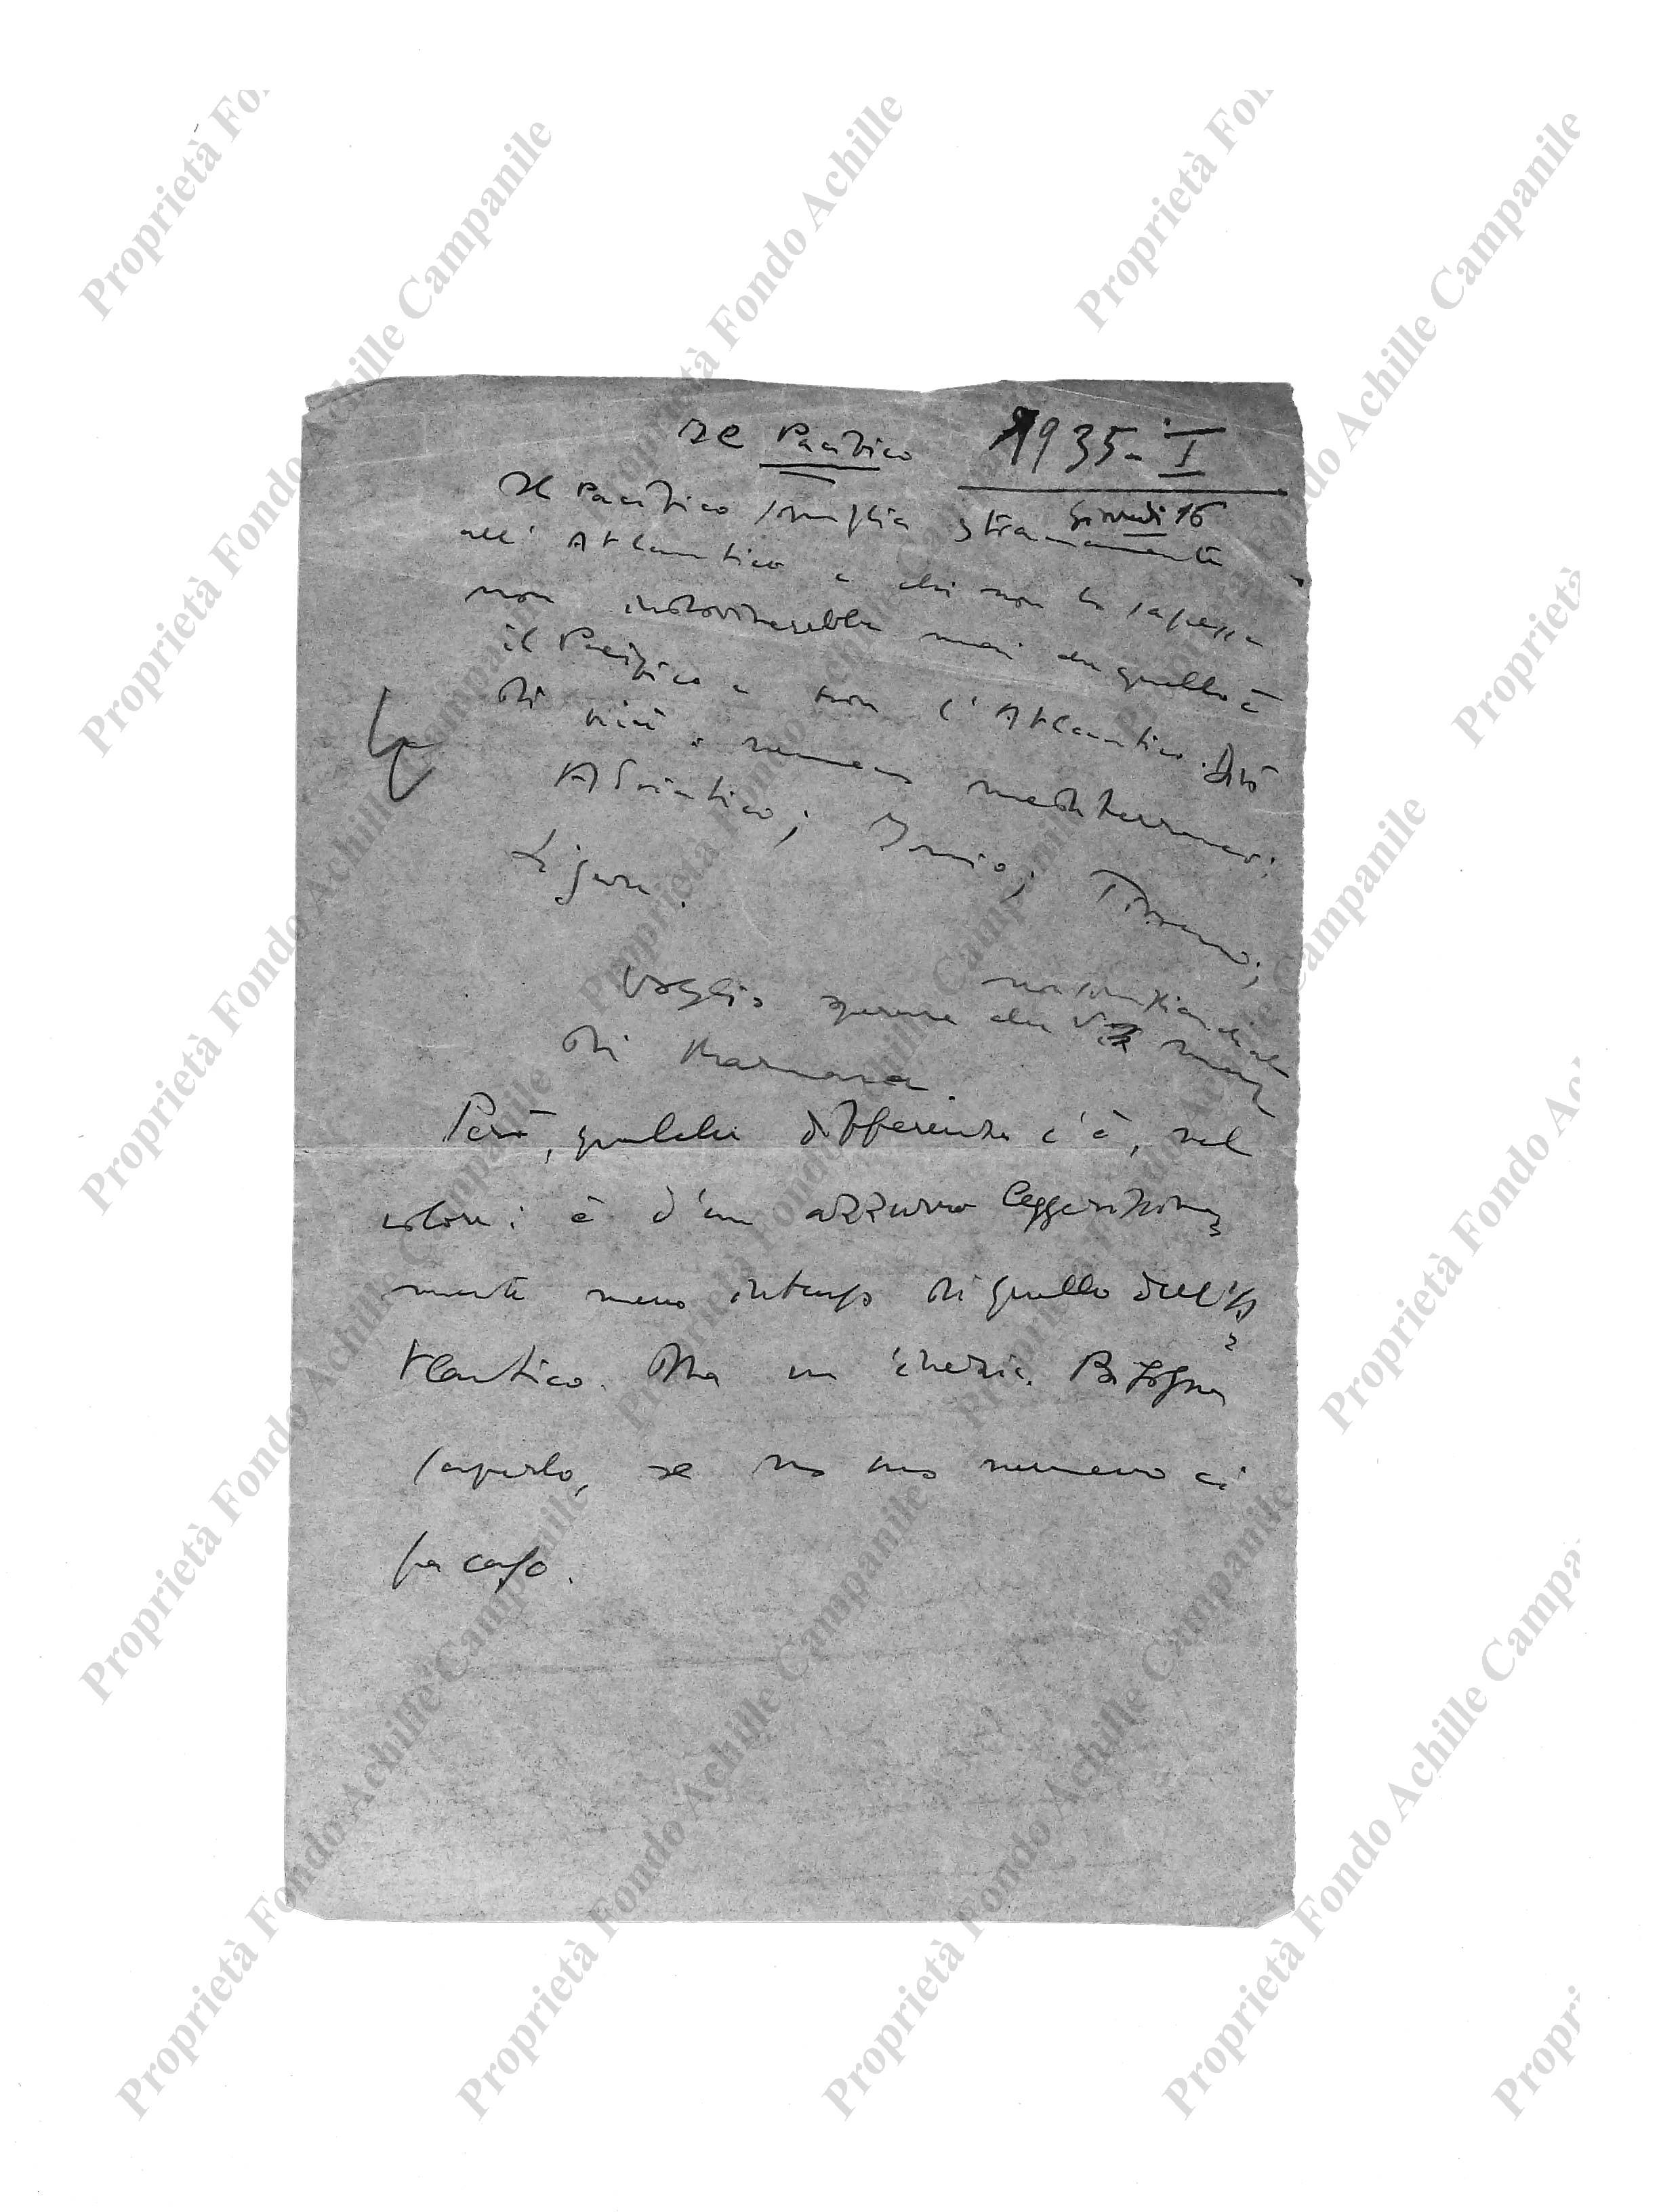 Il Pacifico
1935-I
Giovedì 16
Il Pacifico somiglia stranamente
all'Atlantico e chi non lo sapesse
non indovinerebbe mai che quello è
il Pacifico e non l'Atlantico. Dirò
di più: nemmeno mediterraneo:
Adriatico; Jonio; Tirreno;
Ligure.
non somiglia al
Voglio sperare che mar
di Marmara
Però, qualche differenza c'è, nel
colore: è d'un azzurro leggerissima-
mente meno intenso di quello dell'A-
tlantico. Ma un'inezia. Bisogna
saperlo, se no uno nemmeno ci
fa caso.
Proprietà Fondo Achille Campanile